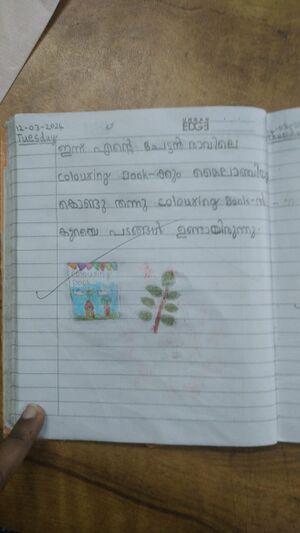 12-03-2024
Tuesday
URBAN
EDGE
ഇന്ന് എന്റെ ചേട്ടൻ രാവിലെ
colouring Book-ഉം മൈലാഞ്ചിയു
കൊണ്ടു തന്നു colouring Book-ൽ
കുറെയെ പടങ്ങൾ ഉണ്ടായിരുന്നു.
colouring
book